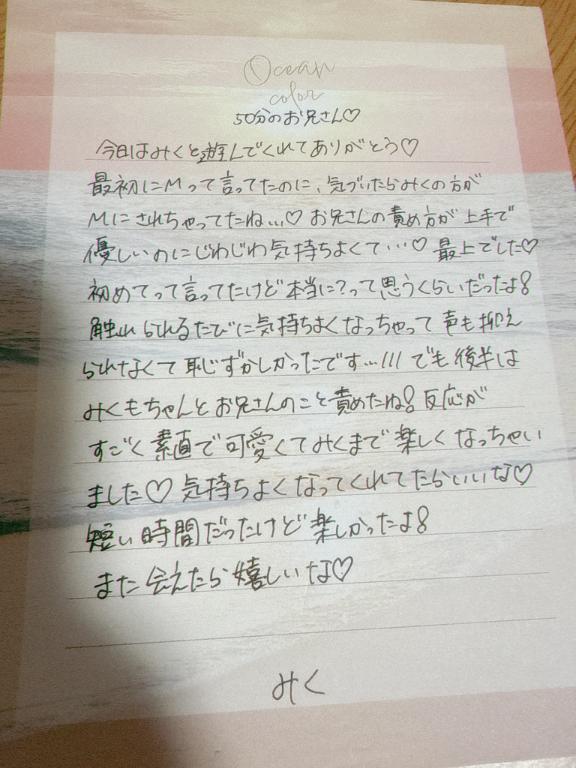 Ocean
color
50分のお兄さん♡
今日はみくと遊んでくれてありがとう♡
最初にMって言ってたのに、気づいたらみくの方が
Mにされちゃってたね...♡ お兄さんの責め方が上手で
優しいのにじわじわ気持ちよくて...♡ 最上でした♡
初めてって言ってたけど本当に?って思うくらいだったよ!
触れられるたびに気持ちよくなっちゃって声も抑え
られなくて恥じずかしかったです.../// でも後半は
みくもちゃんとお兄さんのこと責めたね!反応が
すごく素直で可愛くてみくまで楽しくなっちゃい
ました♡ 気持ちよくなってくれてたらいいな♡
短い時間だったけど楽しかったよ!
また会えたら嬉しいな♡
みく